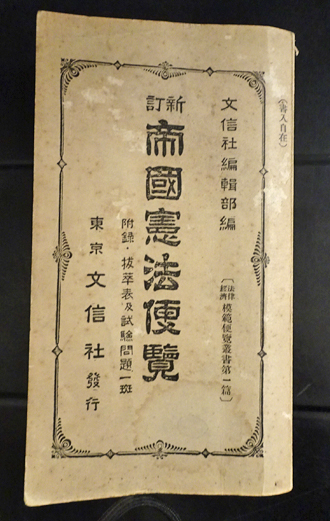 (書入自在)
文信社編輯部編
〔法律經濟模範便覽叢書第一篇〕
新訂
帝國憲法便覽
附錄・拔萃表及試驗問題一斑
東京文信社發行